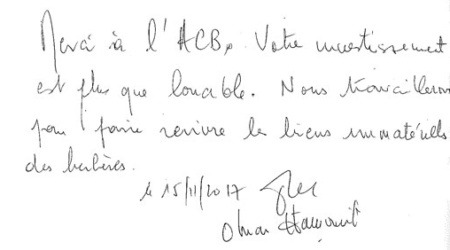 Merci à l'ACB. Votre investissement
est plus que louable. Nous travaillerons
pour faire revivre les biens immatériels
des berbères.
le 15/11/2017